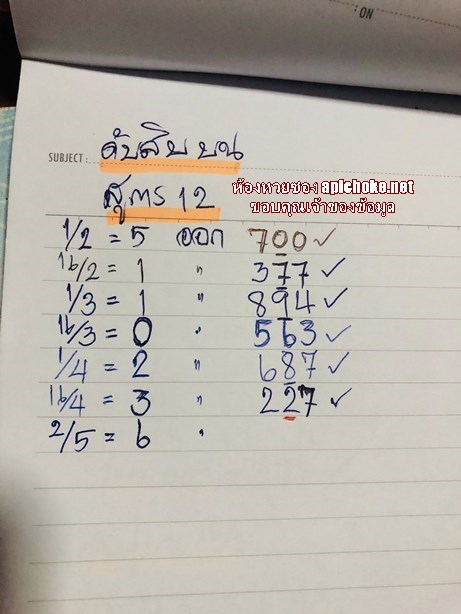 : ON
SUBJECT : ดับสิบ บน
สูตร 12
ห้องหวยซอง apichoke.net
ขอบคุณเจ้าของข้อมูล
1/2 = 5 ออก 700 ✓
16/2 = 1 " 377 ✓
1/3 = 1 " 894 ✓
16/3 = 0 " 563 ✓
1/4 = 2 " 687 ✓
16/4 = 3 " 227 ✓
2/5 = 6 "